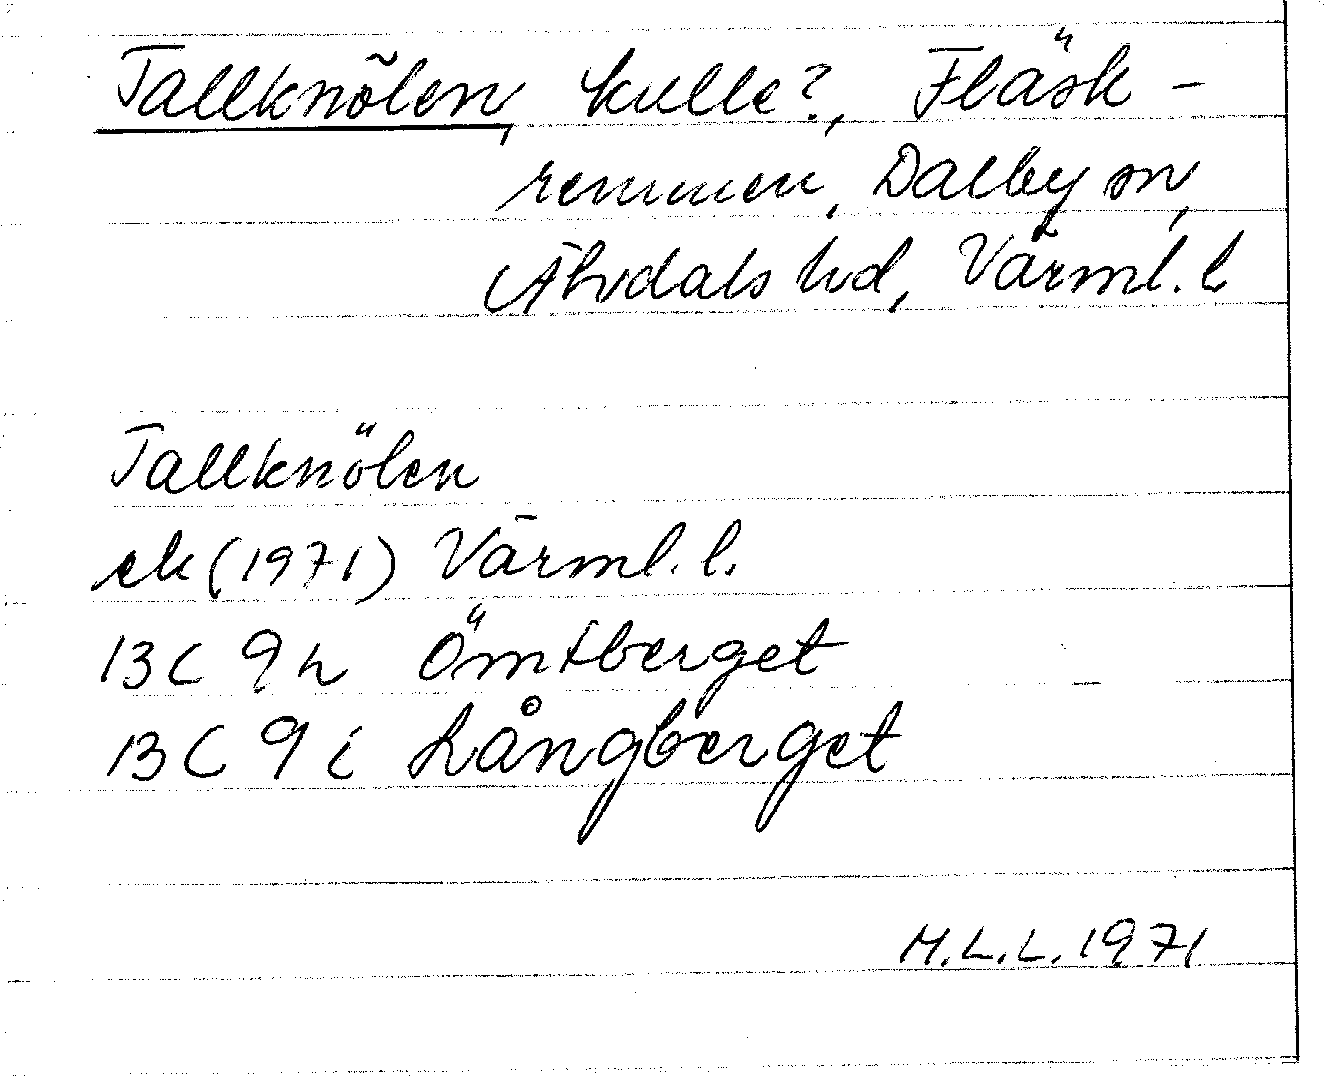 Tallknölen, kulle?, Fläsk-
remmen, Dalby sn,
Älvdals hd, Värml. l
Tallknölen
ek (1971) Värml. l.
13 C 9 h Ömtberget
13 C 9 i Långberget
M.L.L. 1971